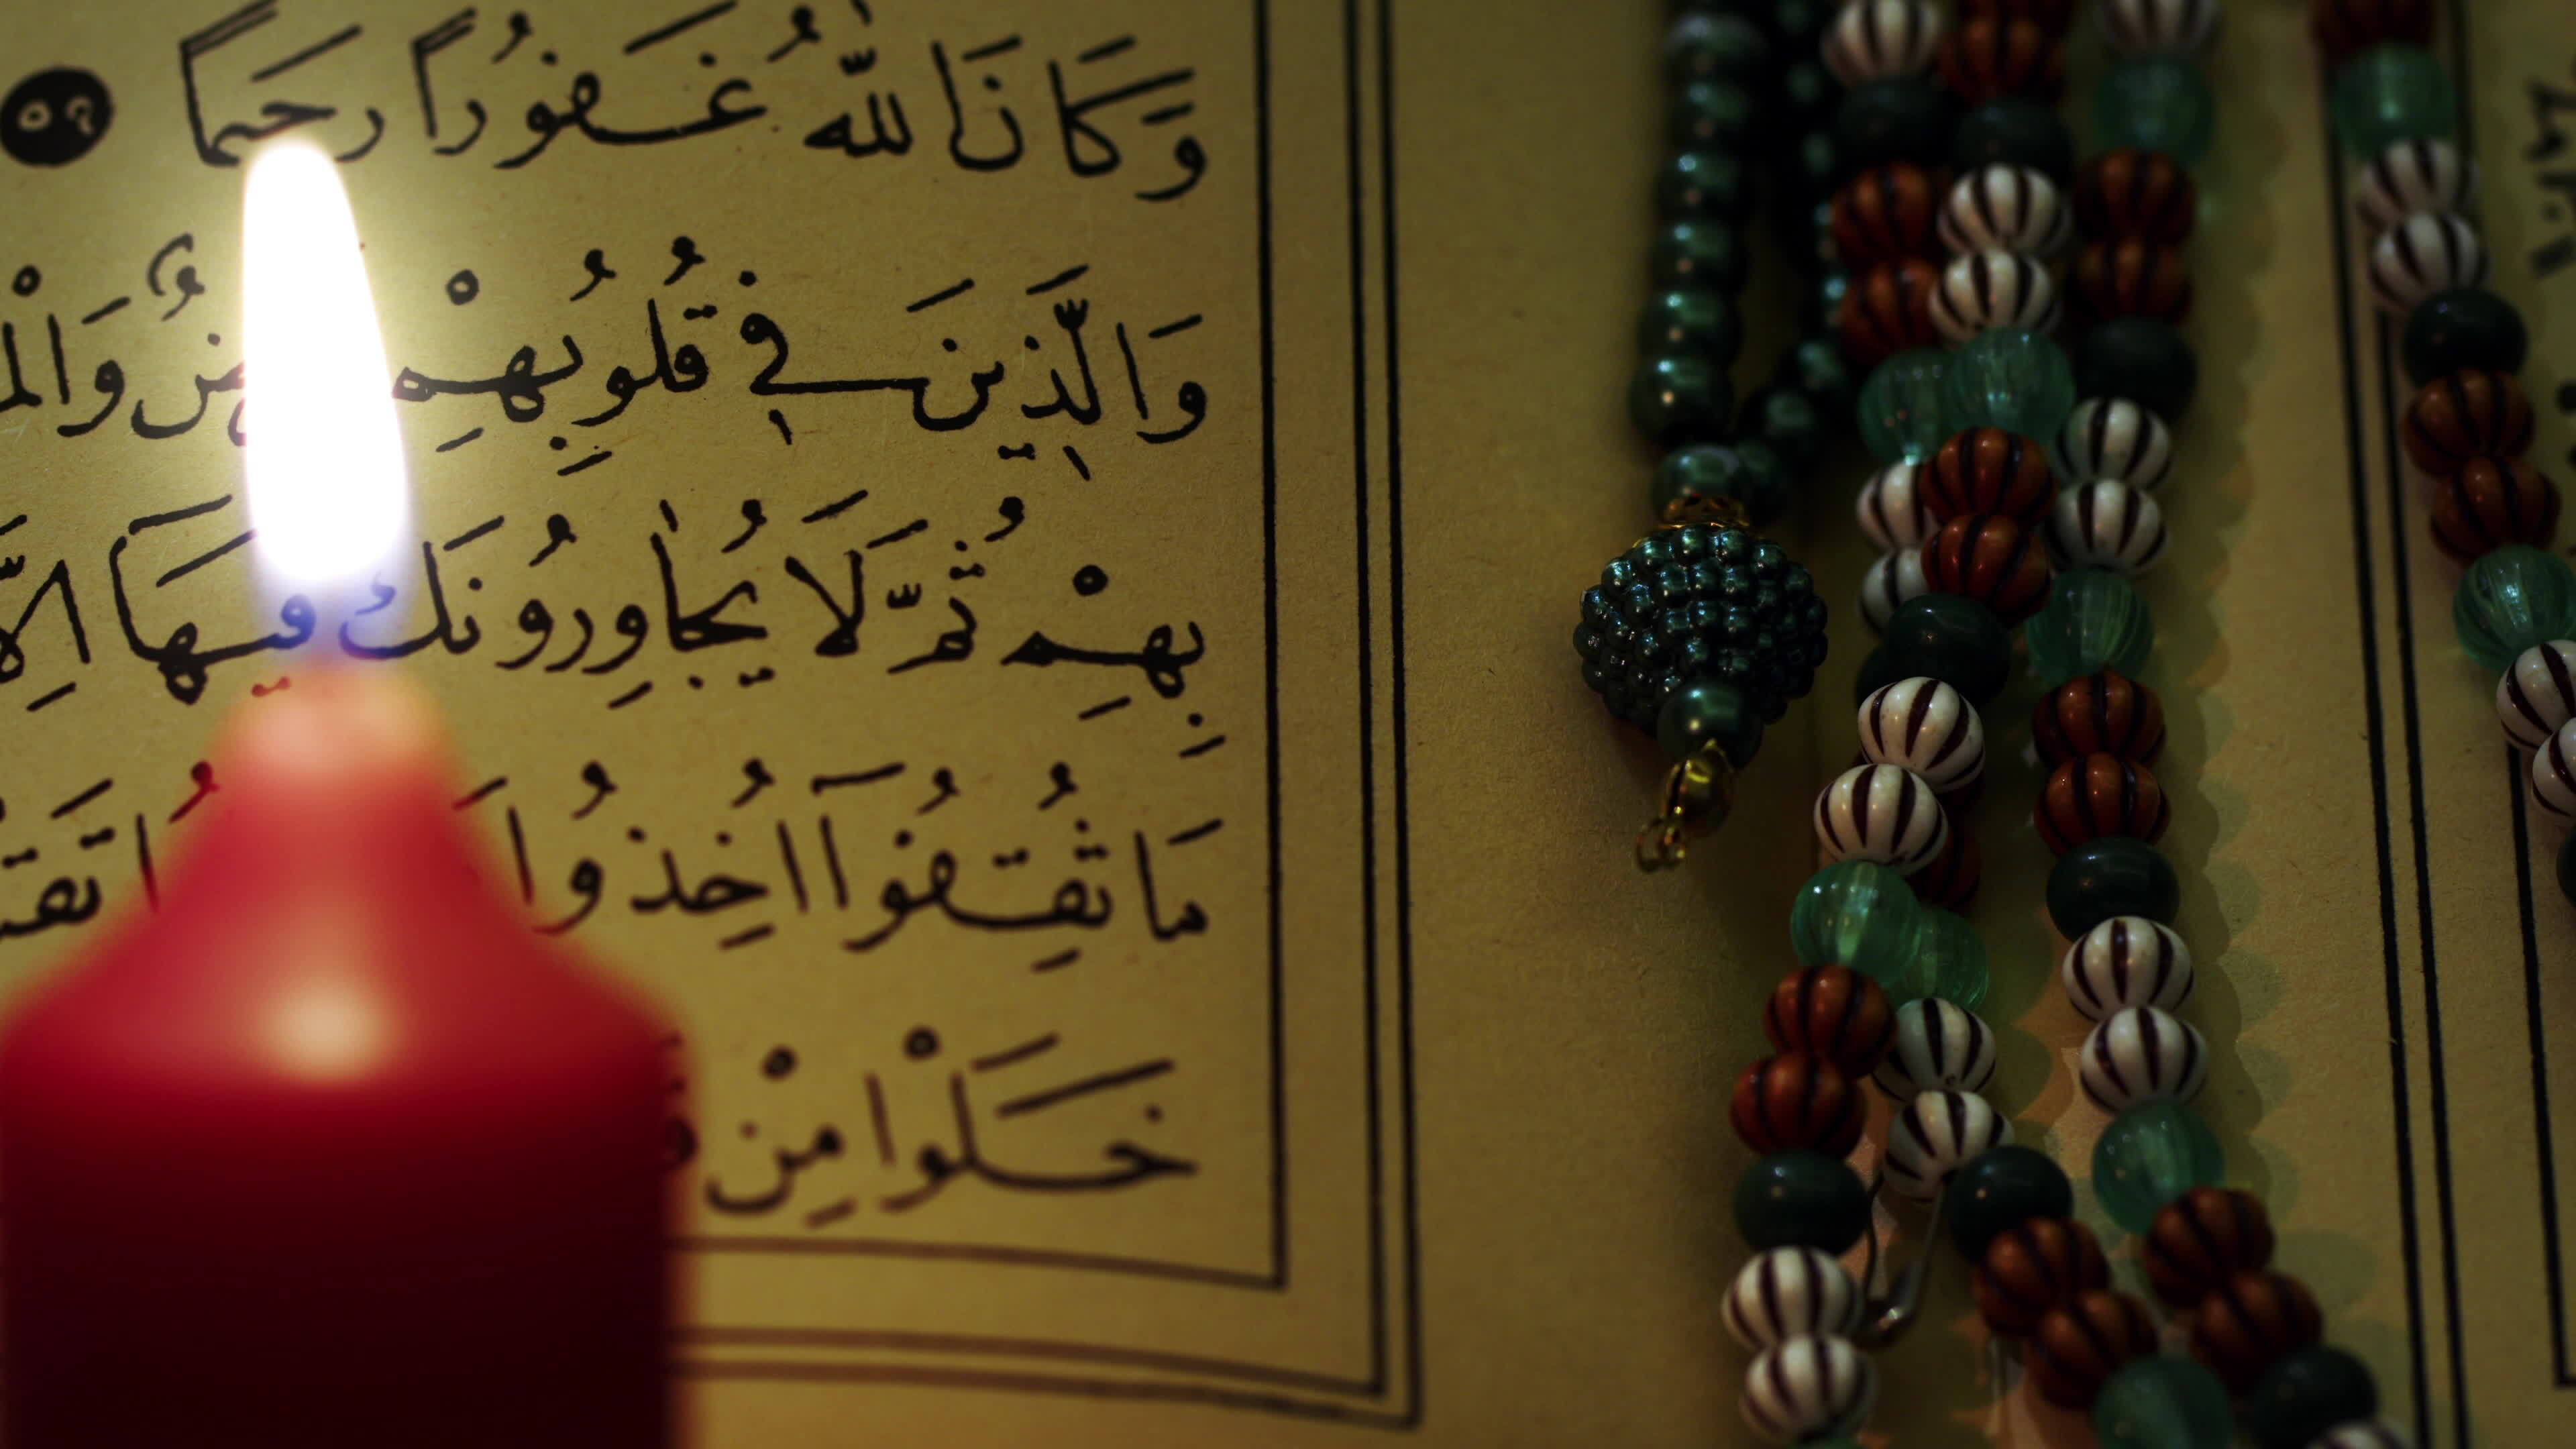 وَكَانَ اللّٰهُ غَفُورًا رَحِيمًا ٥٩
وَالَّذِينَ فِي قُلُوبِهِمْ
بِهِمْ ثُمَّ لَا يُجَاوِرُونَكَ فِيهَا اِلَّا
مَا ثُقِفُوٓا اُخِذُوا
خَلَوْا مِنْ